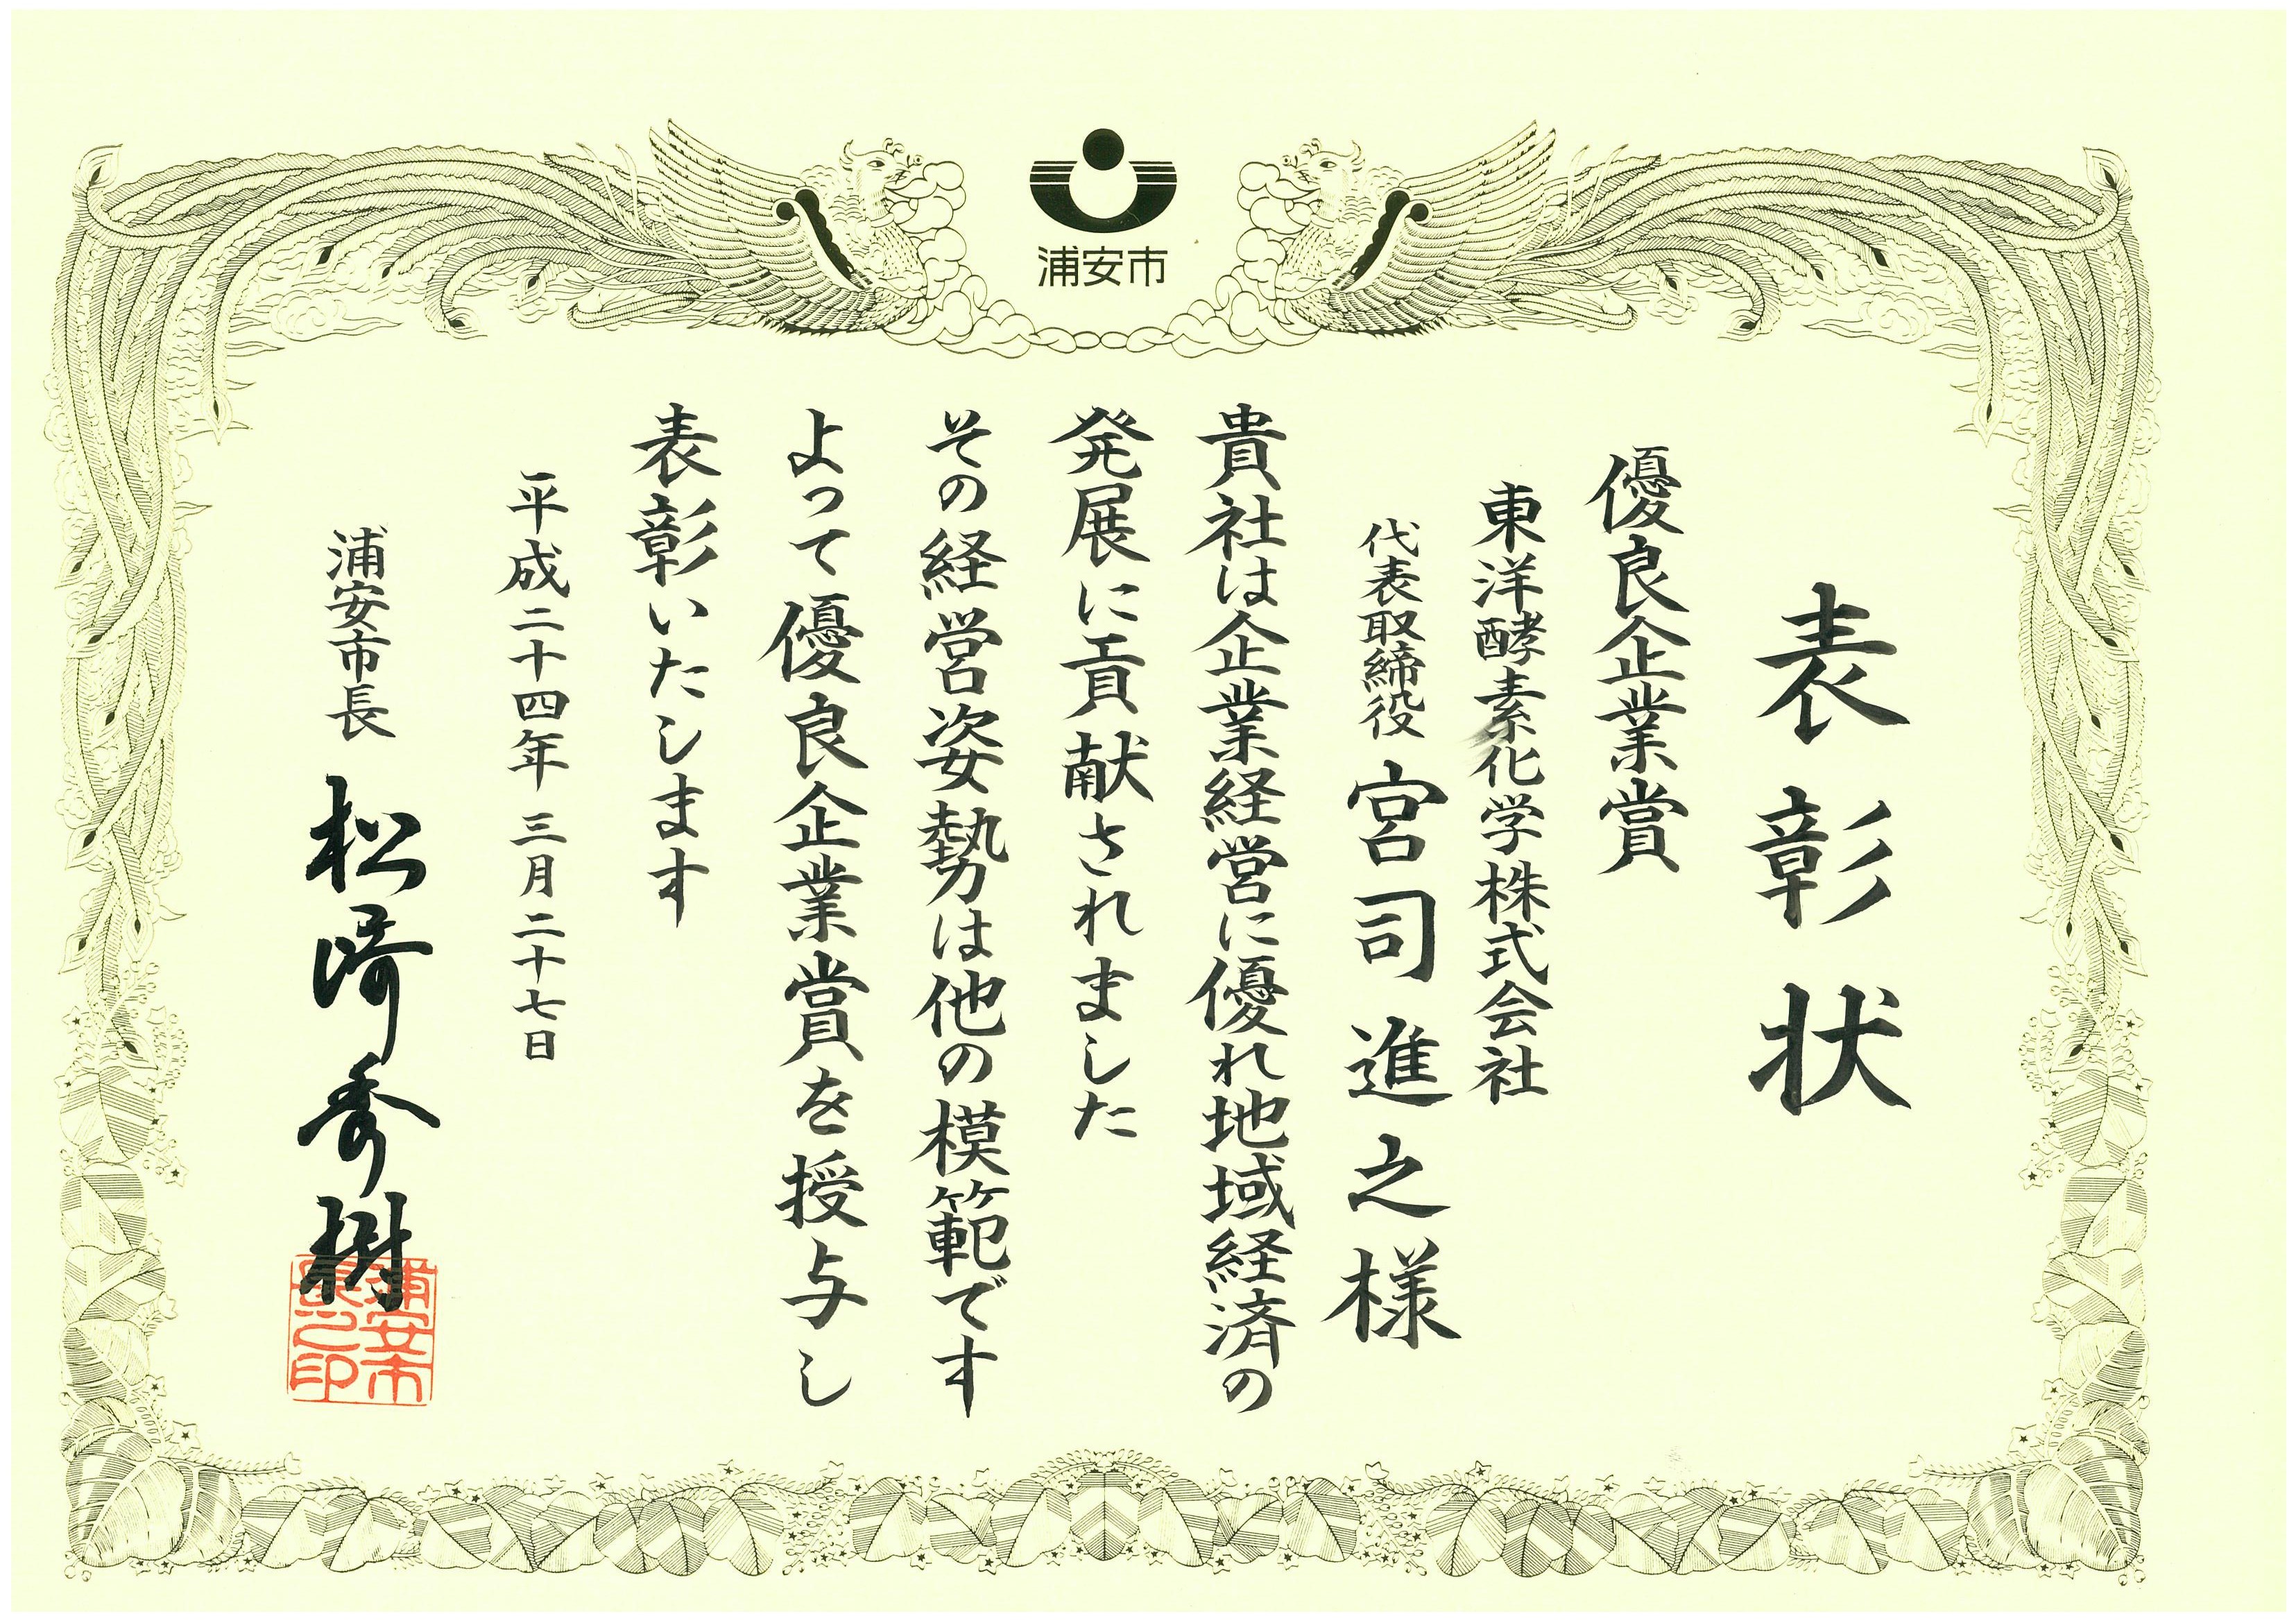 浦安市
表彰状
優良企業賞
東洋酵素化学株式会社
代表取締役 宮司進之様
貴社は企業経営に優れ地域経済の
発展に貢献されました
その経営姿勢は他の模範です
よって優良企業賞を授与し
表彰いたします
平成二十四年三月二十七日
浦安市長 松崎秀樹
浦安市
長之印